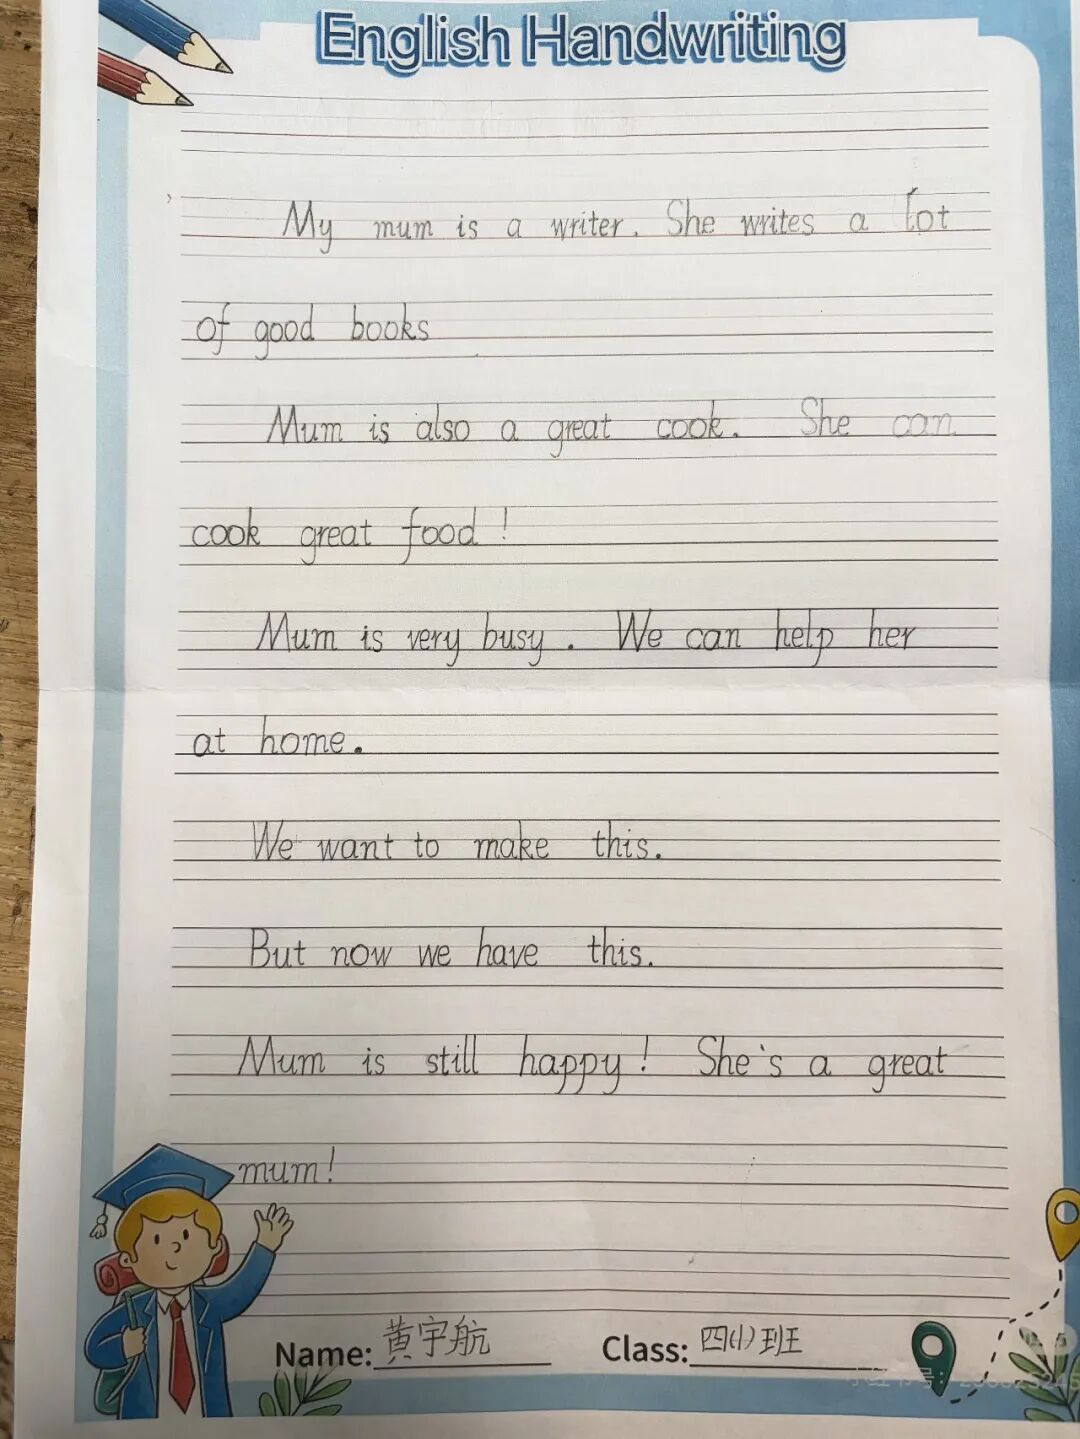 English Handwriting
My mum is a writer. She writes a lot
of good books
Mum is also a great cook. She can
cook great food!
Mum is very busy. We can help her
at home.
We want to make this.
But now we have this.
Mum is still happy! She's a great
mum!
Name: 黄宇航 Class: 四(1)班